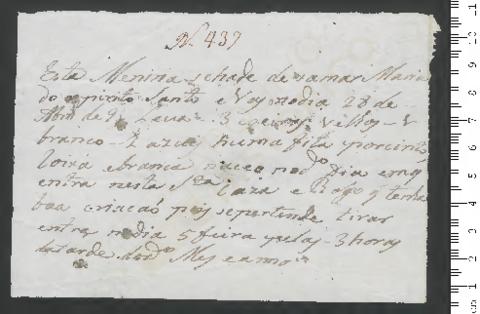 N. 437
Esta Menina se hade chamar Maria
do espirito Santo e Veyo no dia 28 de
Abril de Leva 3 velhos
branco e azul huma fita por cinto
loira e branca naceo no dia em q
entra nesta Sta Caza e Rogo q tenha
boa criacaó pois se pertende tirar
entra no dia 5 feira pelas 3 horas
da tarde do dº Mes e anno